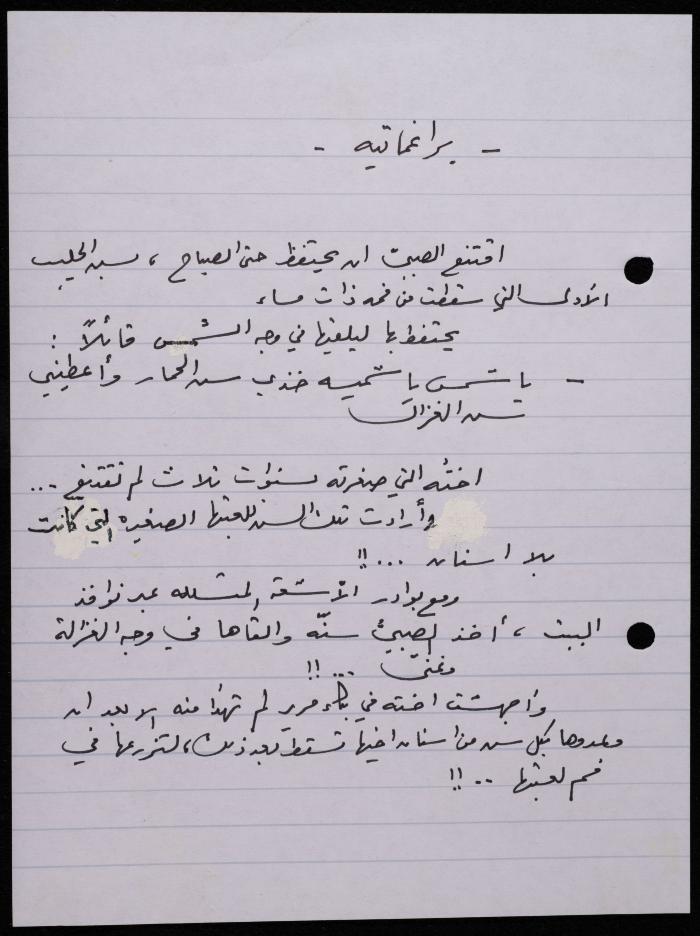 - براغماتيه -
اقتنع الصبيّ ان يحتفظ حتى الصباح ، بسن الحليب
الأولى التي سقطت من فمه ذات مساء
يحتفظ بها ليلقيها في وجه الشمس قائلاً :
- يا شمس يا شميسه خذي سن الحمار وأعطيني
سن الغزال
اخته التي صغرته بسنوات ثلاث لم تقتنع ...
وأرادت تلك السن للعبتها الصغيره التي كانت
بلا اسنان ... !!
ومع بوادر الأشعة المتسلله عبر نوافذ
البيت ، أخذ الصبيّ سنّه والقاها في وجه الغزالة
وغنىّ ... !!
وأجهشت اخته في بكاء مرير لم تهدأ منه الا بعد ان
وعدوها بكل سن من اسنان اخيها تسقط بعد ذلك، لتزرعها في
فم لعبتها .. !!